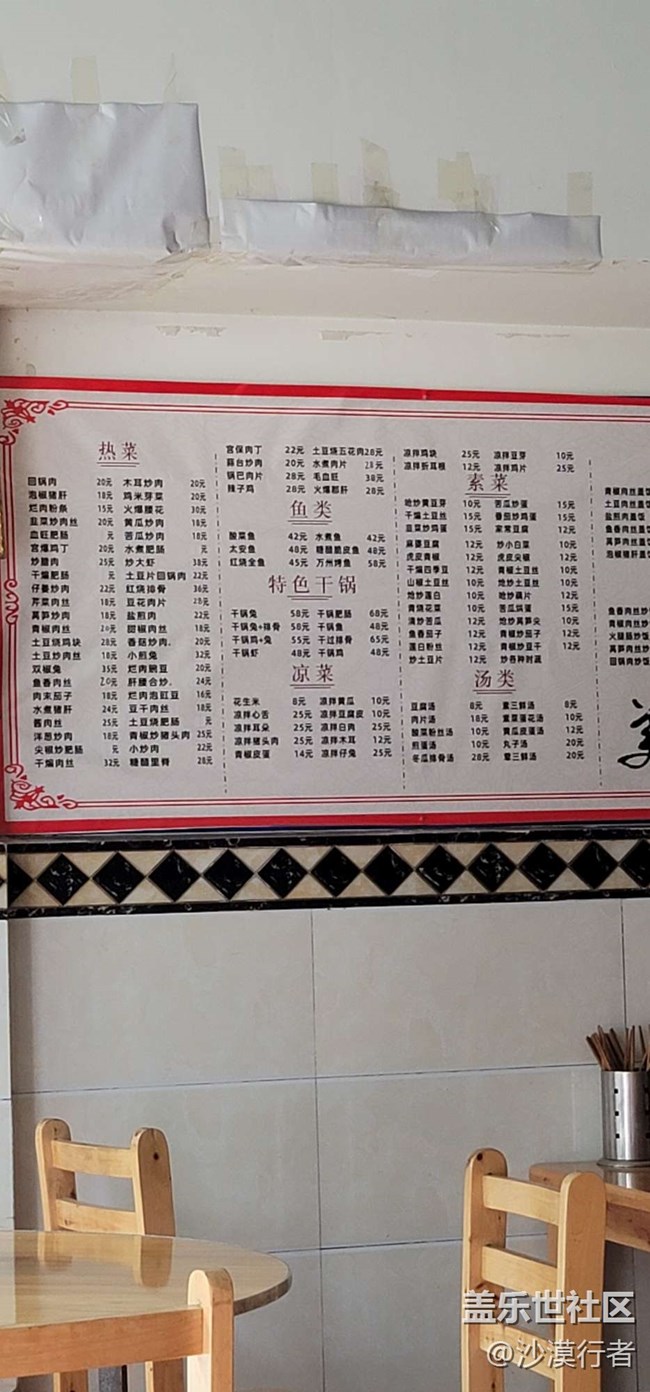 热菜
回锅肉 20元 木耳炒肉 20元
泡椒猪肝 18元 鸡米芽菜 20元
烂肉粉条 15元 火爆腰花 30元
韭菜炒肉丝 20元 黄瓜炒肉 18元
血旺肥肠 元 苦瓜炒肉 18元
宫爆鸡丁 20元 水煮肥肠 元
炒腊肉 25元 炒大虾 38元
干煸肥肠 元 土豆片回锅肉 22元
仔姜炒肉 22元 红烧排骨 36元
芹菜肉丝 18元 豆花肉片 28元
莴笋炒肉 18元 盐煎肉 22元
青椒肉丝 20元 甜椒肉丝 18元
土豆烧鸡块 28元 香菇炒肉 20元
土豆炒肉丝 18元 小煎兔 32元
双椒兔 35元 烂肉豌豆 20元
鱼香肉丝 20元 肝腰合炒 24元
肉末茄子 18元 烂肉泡豇豆 16元
水煮猪肝 24元 豆干肉丝 18元
酱肉丝 25元 土豆烧肥肠 元
洋葱炒肉 18元 青椒炒猪头肉 25元
尖椒炒肥肠 元 小炒肉 22元
干煸肉丝 32元 糖醋里脊 28元
宫保肉丁 22元 土豆烧五花肉 28元
蒜台炒肉 20元 水煮肉片 28元
锅巴肉片 28元 毛血旺 38元
辣子鸡 28元 火爆郡肝 28元
鱼类
酸菜鱼 42元 水煮鱼 42元
太安鱼 48元 糖醋脆皮鱼 48元
红烧全鱼 45元 万州烤鱼 58元
特色干锅
干锅兔 58元 干锅肥肠 68元
干锅兔+排骨 58元 干锅鱼 48元
干锅鸡+兔 55元 干过排骨 65元
干锅虾 48元 干锅鸡 48元
凉菜
花生米 8元 凉拌黄瓜 10元
凉拌心舌 25元 凉拌豆腐皮 10元
凉拌耳朵 25元 凉拌白肉 25元
凉拌猪头肉 25元 凉拌木耳 12元
青椒皮蛋 14元 凉拌仔兔 25元
凉拌鸡块 25元 凉拌豆芽 10元
凉拌折耳根 12元 凉拌鸡片 25元
素菜
炝炒黄豆芽 10元 苦瓜炒蛋 15元
干煸土豆丝 15元 番茄炒鸡蛋 15元
韭菜炒鸡蛋 15元 家常豆腐 12元
麻婆豆腐 12元 炒小白菜 10元
虎皮青椒 12元 虎皮尖椒 12元
干煸四季豆 12元 青椒土豆丝 10元
山椒土豆丝 10元 炝炒土豆丝 10元
炝炒莲白 10元 炝炒藕片 12元
青烧花菜 10元 苦瓜煎蛋 15元
清炒苦瓜 12元 炝炒莴笋尖 10元
鱼香茄子 12元 青椒炒茄子 12元
莲白粉丝 12元 青椒炒豆干 12元
炒土豆片 12元 炒各种时蔬
汤类
豆腐汤 8元 素三鲜汤 8元
肉片汤 18元 紫菜蛋花汤 10元
酸菜粉丝汤 10元 黄瓜皮蛋汤 12元
煎蛋汤 10元 丸子汤 20元
冬瓜排骨汤 28元 荤三鲜汤 20元
青椒肉丝盖饭
土豆肉丝盖饭
盐煎肉盖饭
鱼香肉丝盖饭
莴笋肉丝盖饭
泡椒猪肝盖饭
鱼香肉丝炒饭
青椒肉丝炒饭
火腿肠炒饭
莴笋肉丝炒饭
回锅肉炒饭
盖乐世社区
@沙漠行者